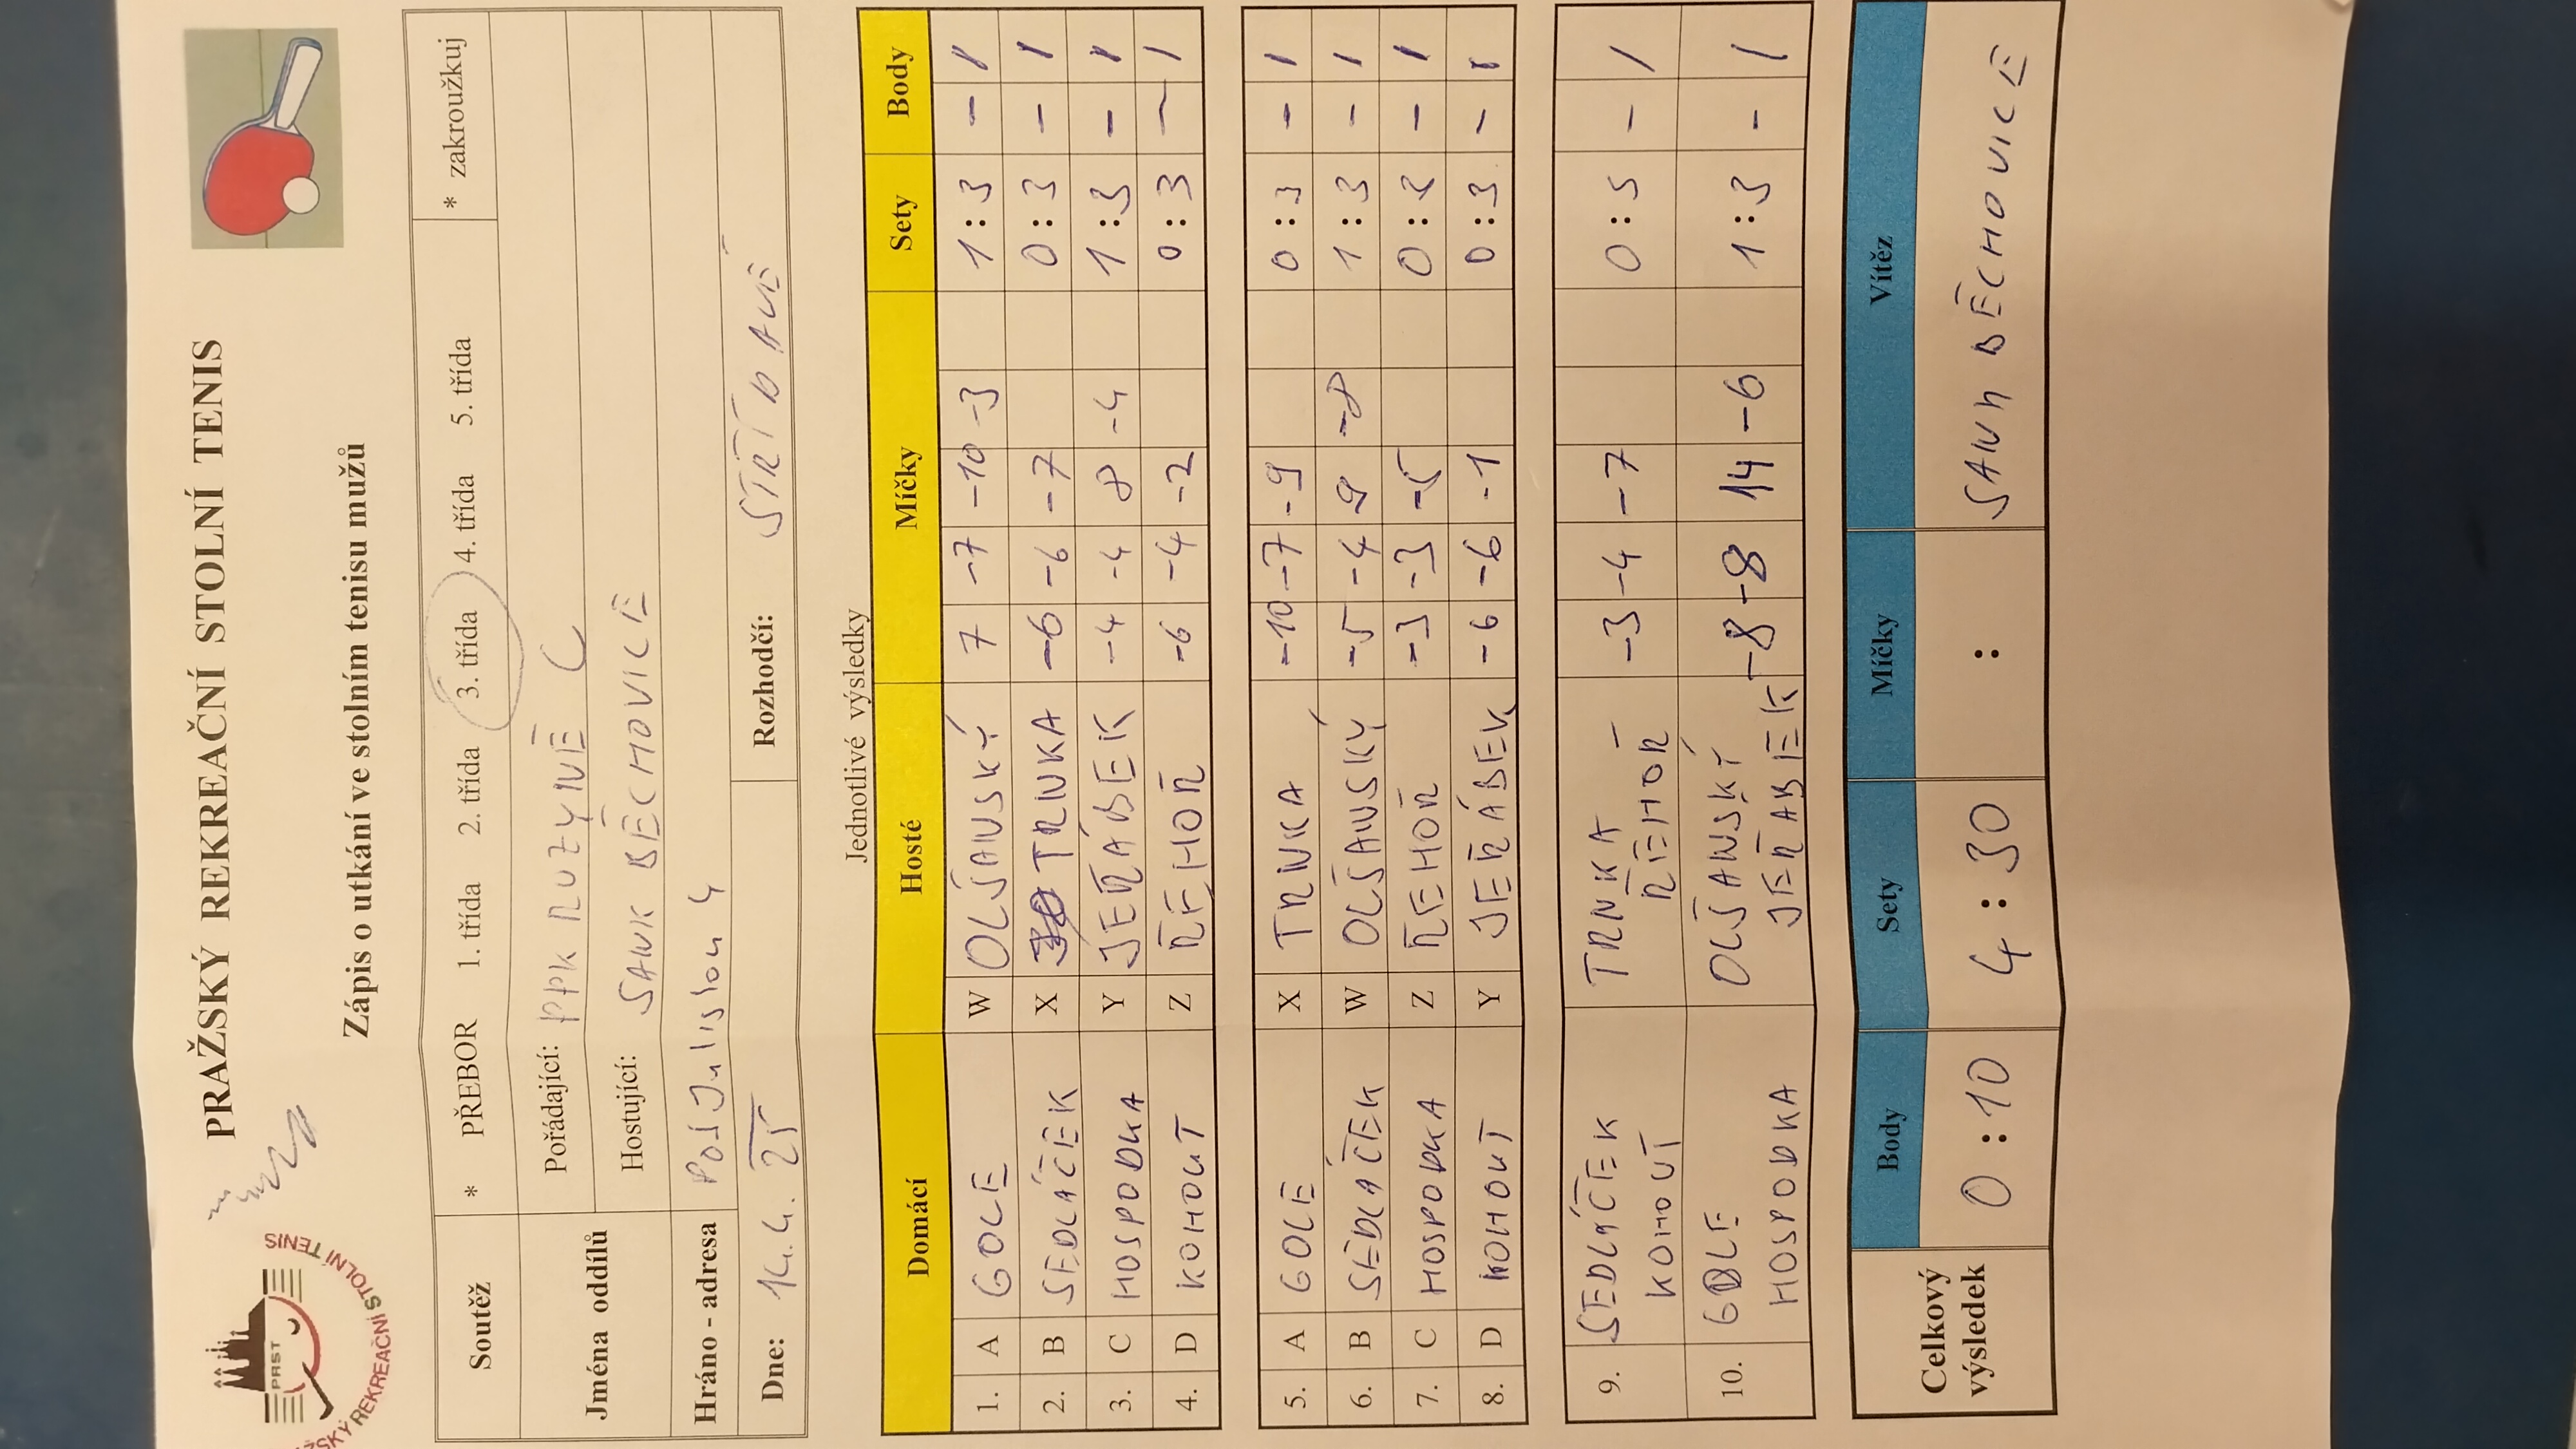 PRAŽSKÝ REKREAČNÍ STOLNÍ TENIS
PRST
PRAŽSKÝ REKREAČNÍ STOLNÍ TENIS
Zápis o utkání ve stolním tenisu mužů
Soutěž * PŘEBOR 1. třída 2. třída 3. třída 4. třída 5. třída * zakroužkuj
Jména oddílů Pořádající: PPK RUZYNĚ C
Hostující: SANK BĚCHOVICE
Hráno - adresa Pod Juliskou 4
Dne: 14.4.25 Rozhodčí: STŘÍDAVĚ
Jednotlivé výsledky
Domácí Hosté Míčky Sety Body
1. A GOLE W OLŠANSKÝ 7 -7 -10 -3 1:3 - 1
2. B SEDLÁČEK X TRNKA -6 -6 -7 0:3 - 1
3. C HOSPODKA Y JEŘÁBEK -4 -4 8 -4 1:3 - 1
4. D KOHOUT Z ŘEHOŘ -6 -4 -2 0:3 - 1
5. A GOLE X TRNKA -10 -7 -9 0:3 - 1
6. B SEDLÁČEK W OLŠANSKÝ -5 -4 9 -8 1:3 - 1
7. C HOSPODKA Z ŘEHOŘ -3 -3 -5 0:3 - 1
8. D KOHOUT Y JEŘÁBEK -6 -6 -1 0:3 - 1
9. SEDLÁČEK TRNKA -3 -4 -7 0:3 - 1
KOHOUT ŘEHOŘ
10. GOLE OLŠANSKÝ -8 -8 14 -6 1:3 - 1
HOSPODKA JEŘÁBEK
Celkový výsledek Body Sety Míčky Vítěz
0:10 4:30 : SANK BĚCHOVICE